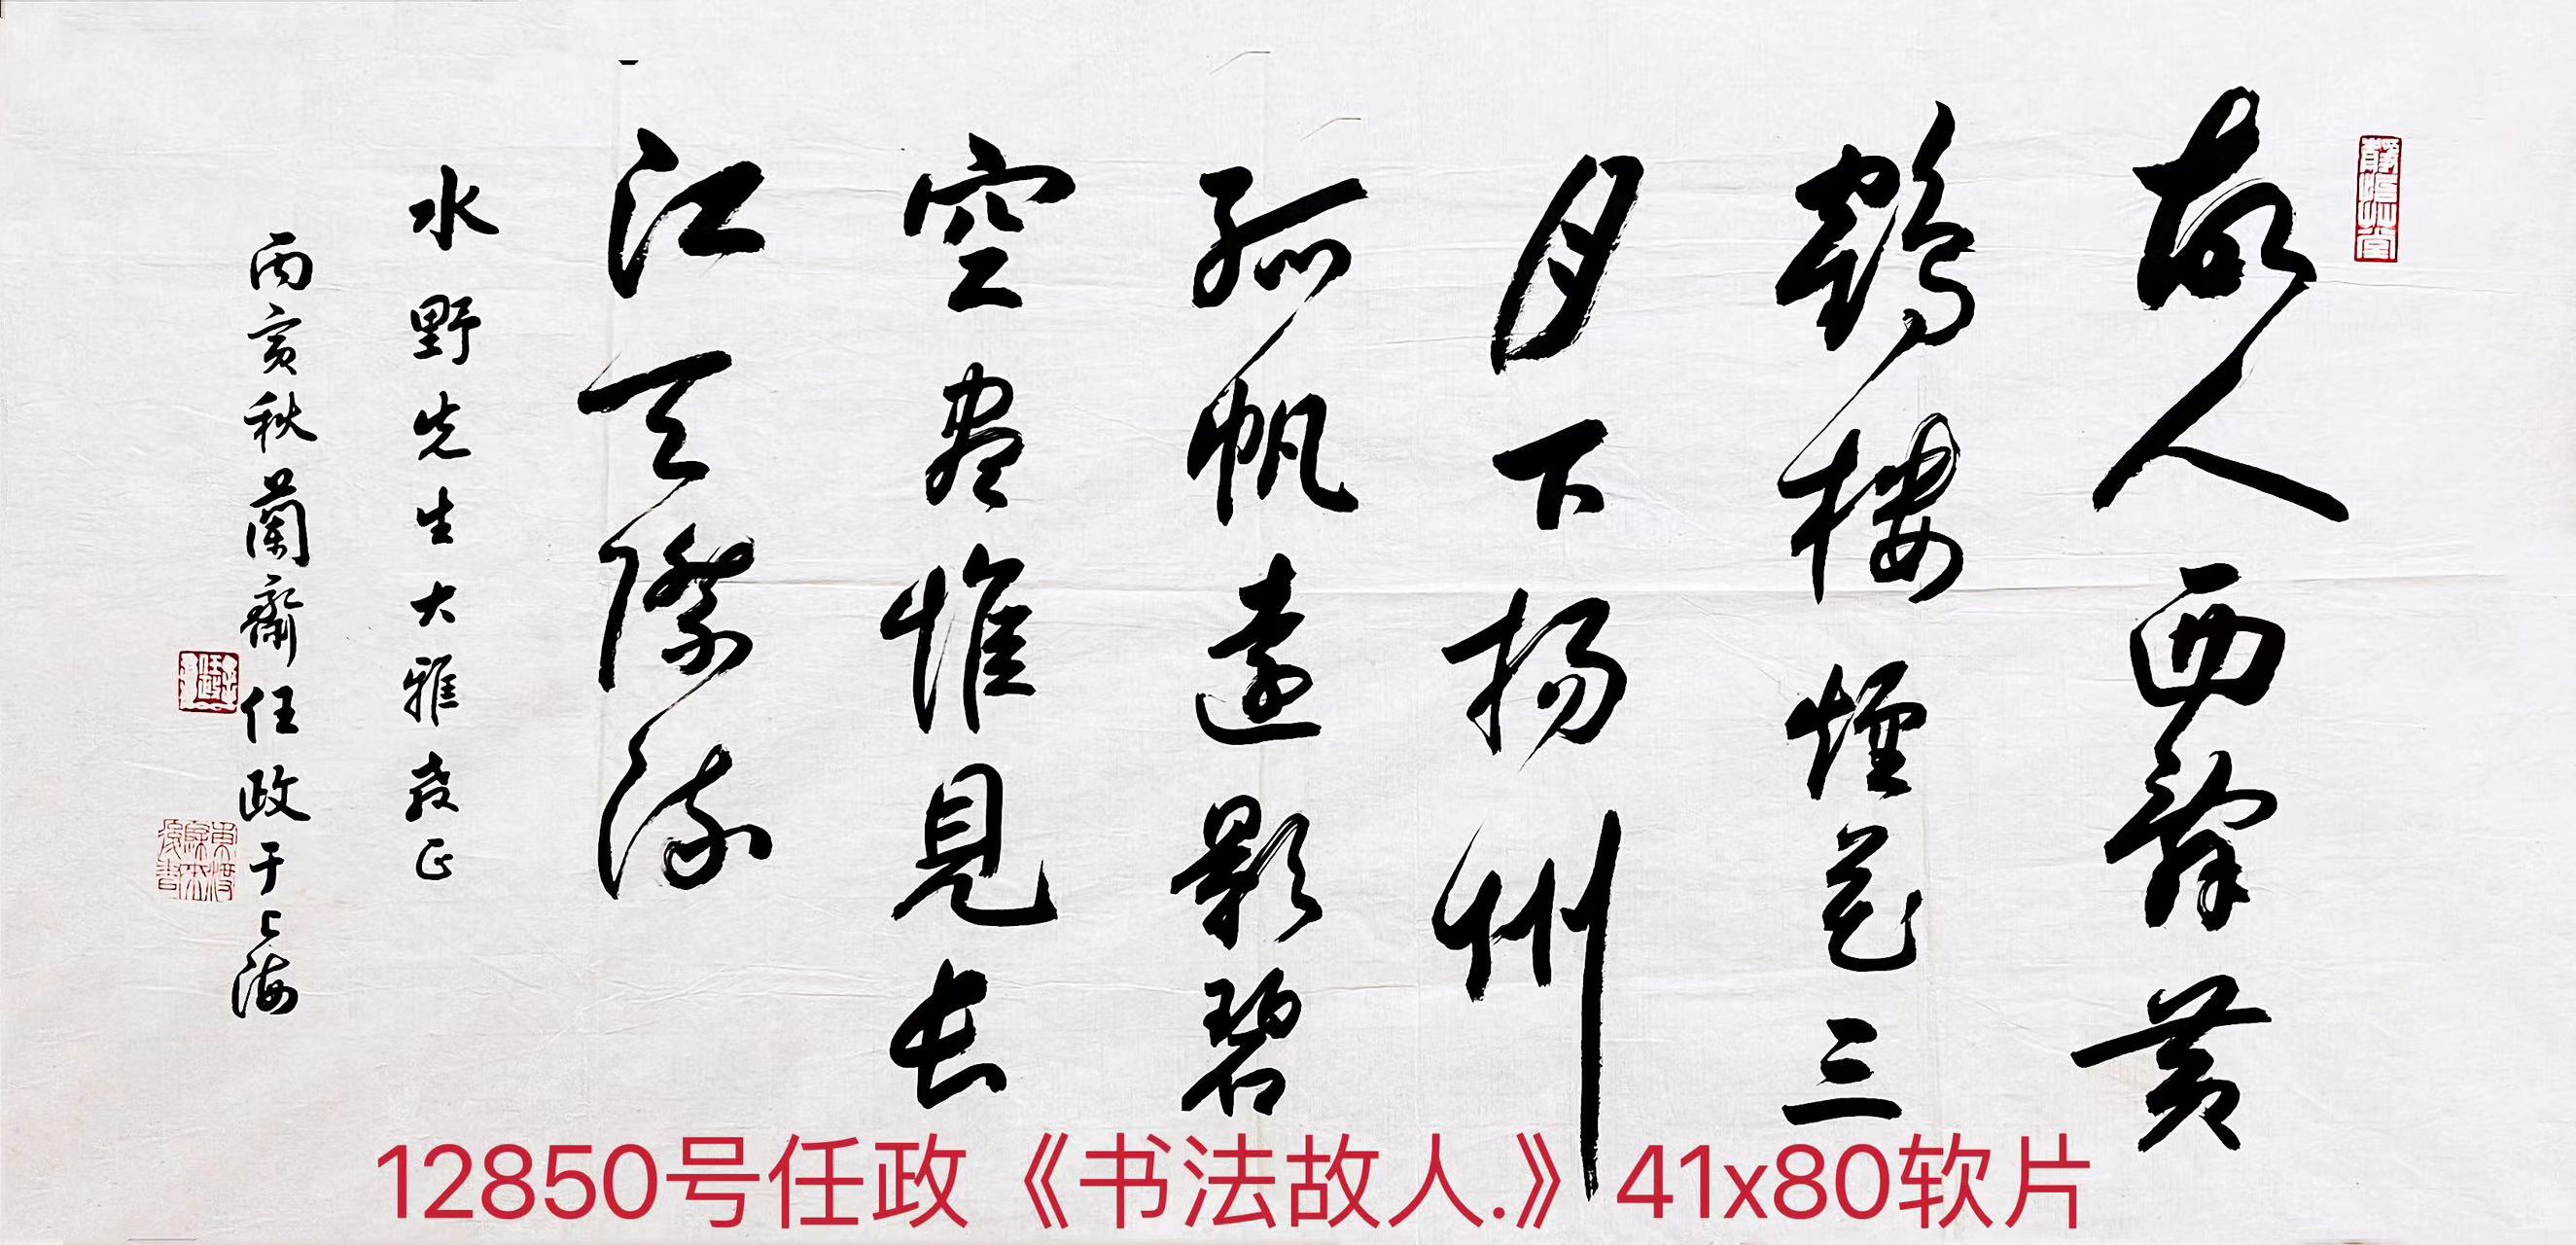 故人西辭黃
鶴樓煙花三
月下揚州
孤帆遠影碧
空盡惟見長
江天際流
水野先生大雅教正
丙寅秋蘭齋任政于上海
12850号任政《书法故人.》41x80软片